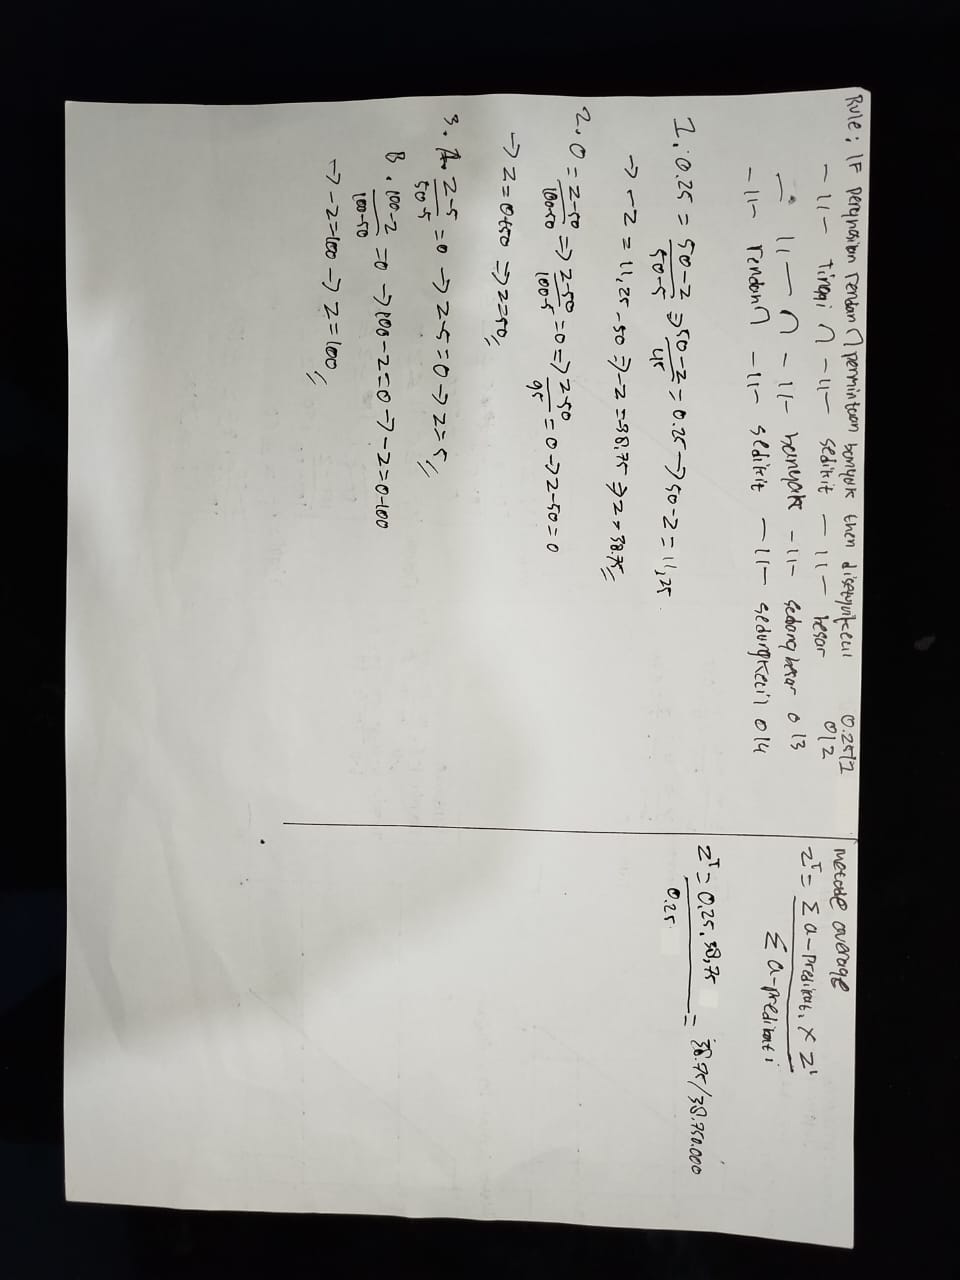 Rule: IF penghasilan rendah ∩ permintaan banyak then disetujui kecil 0.25/1
-11- tinggi ∩ -11- sedikit -11- besar 0/2
-11- ∩ -11- banyak -11- sedang besar 0/3
-11- rendah ∩ -11- sedikit -11- sedang kecil 0/4
1. 0.25 = 50-z/50-5 => 50-z/45 = 0.25 -> 50-z = 11,25
-> -z = 11,25-50 => -z = -38,75 => z = 38.75//
2. 0 = z-50/100-50 => z-50/100-5 = 0 => z-50/95 = 0 -> z-50 = 0
-> z = 0+50 => z=50//
3. A. z-5/50-5 = 0 -> z-5 = 0 -> z = 5//
B. 100-z/100-50 = 0 -> 100-z = 0 -> -z = 0-100
-> -z = 100 -> z = 100//
Metode average
z^T = Σ a-predikat i × z^i
Σ a-predikat i
z^T = 0.25 . 38,75 = 38.75/38.750.000
0.25